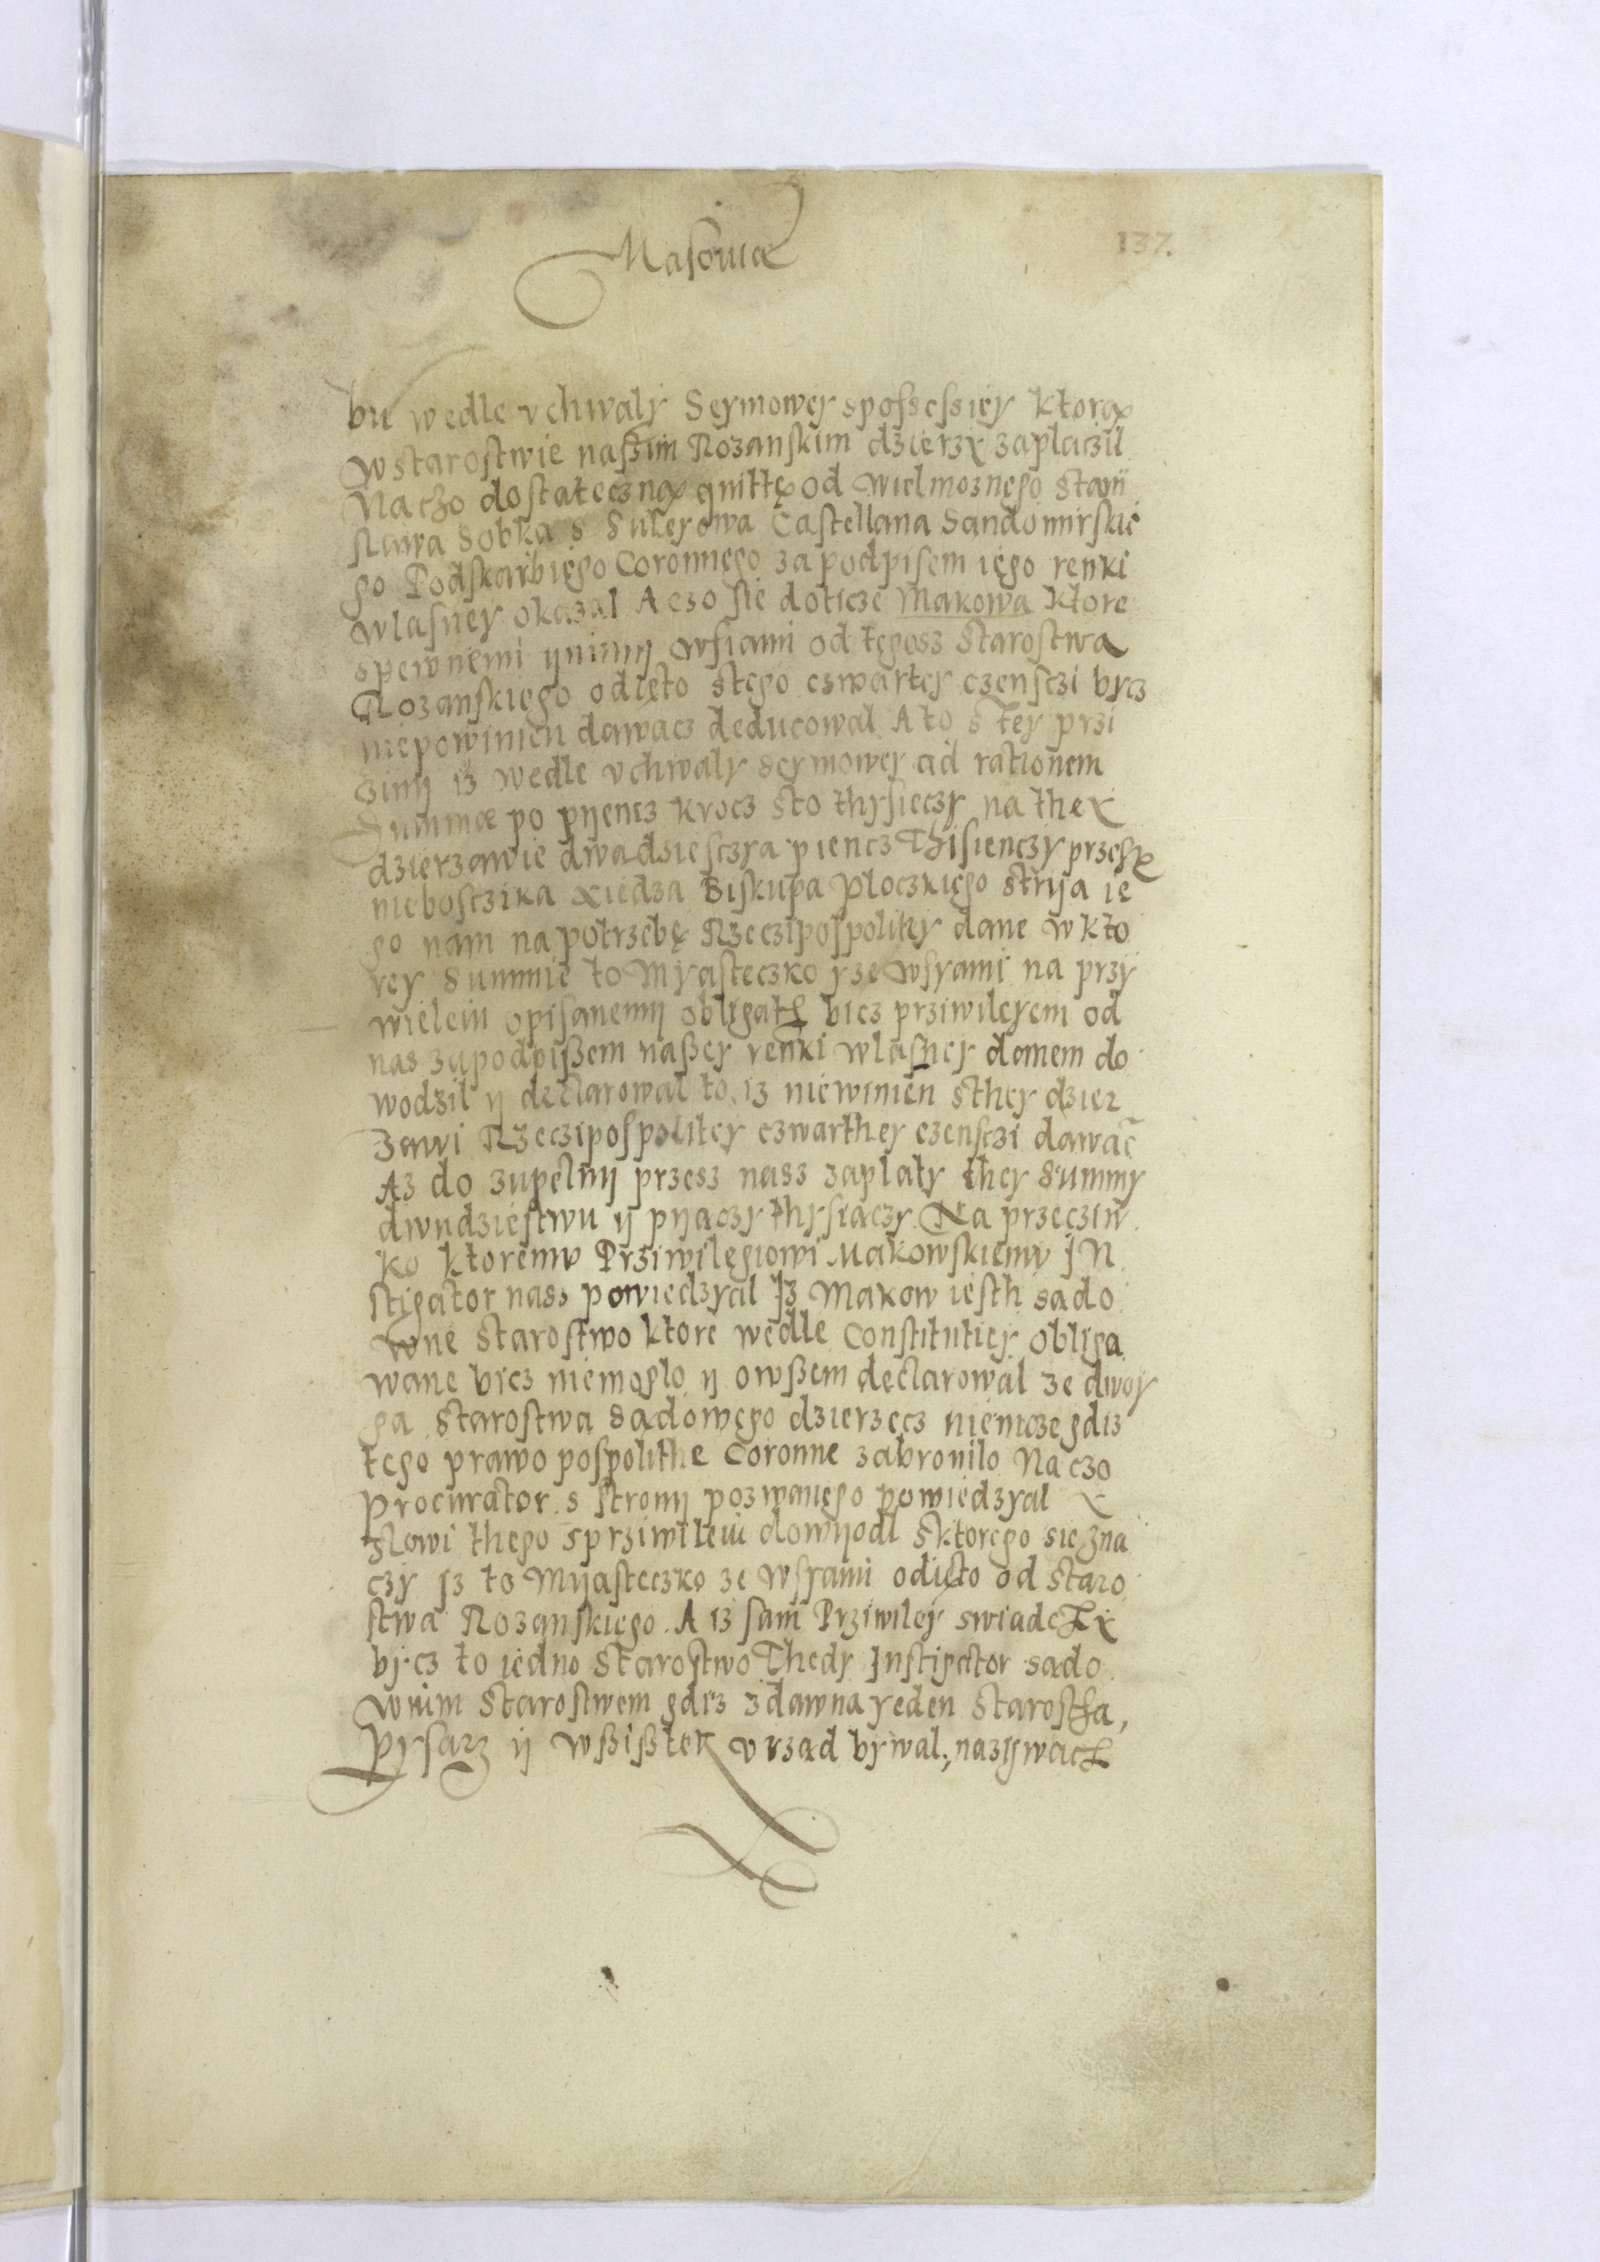 Masowiæ
137.
bu wedle vchwaly Seymowey spossessiey ktorą
w starostwie naszim Rozanskim dzierzy zaplaczil
Na czo dostateczną quittę od wielmoznego stani
slawa Sobka s Sulejowa Castellana Sandomirskie
go Podskarbiego Coronnego za podpisem iego renki
wlasney okazal A czo sie doticze Makowa ktore
spewnemi ynimy wsiami od tegosz starostwa
Rozanskiego odięto stego czwartey czensczi bycz
niepowinien dawacz deducowal A to s tey przi
ziny iz wedle vchwaly seymowey ad rationem
Summæ po pyencz krocz sto thysieczy na they
dzierzawie dwadziesczya piencz Thisienczy przesz
nieboszczika xiedza Biskupa Ploczkiego stryja ie
go nam na potrzebę Rzeczipospolithy dane w kto
rey Summie to Myasteczko y ze wsyami na przy
wieleiu opisanemy obligath bicz prziwileyem od
nas zapodpißem naßey renki wlasney danem do
wodzil y declarowal to, iz niewinien sthey dzier
zawi Rzeczipospolitey czwarthey czensczi dawac
Az do zupelny przesz nasz zaplaty they Summy
dwudziestwu y pyaczy thysiaczy. Na przeciw
ko ktoremu Prziwilegiowi Makowskiemu In
stigator nasz powiedzyal Iz Makow iesth sado
wne Starostwo ktore wedle Constitutiey obliga
wane bicz niemoglo y owßem declarowal ze dwoy
ga starostwa sadowego dzierzecz niemoze gdiz
tego prawo pospolithe Coronne zabronilo Na czo
Procurator s strony pozwanego powiedzyal y
slowi thego sprziwileiu dowyodl sktorego sie zna
czy Iz to Myasteczko ze wsyami odięto od staro
stwa Rozanskiego. A iz sam Prziwiley swiadczy
bycz to iedno Starostwo Thedy Instigator sado
wnim Starostwem gdiz zdawna yeden Starostha,
Pysarz y wßißtek vrzad bywal, nazywacz